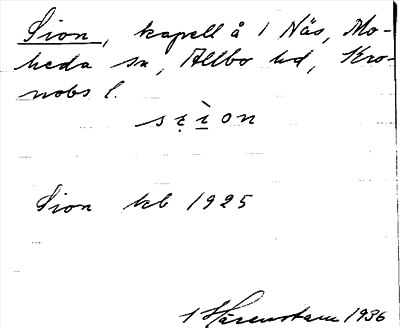 Sion, kapell å 1 Näs, Mo-
heda sn, Allbo hd, Kro-
nobs l.
sị̀on
Sion kb 1925
Härenstam 1936